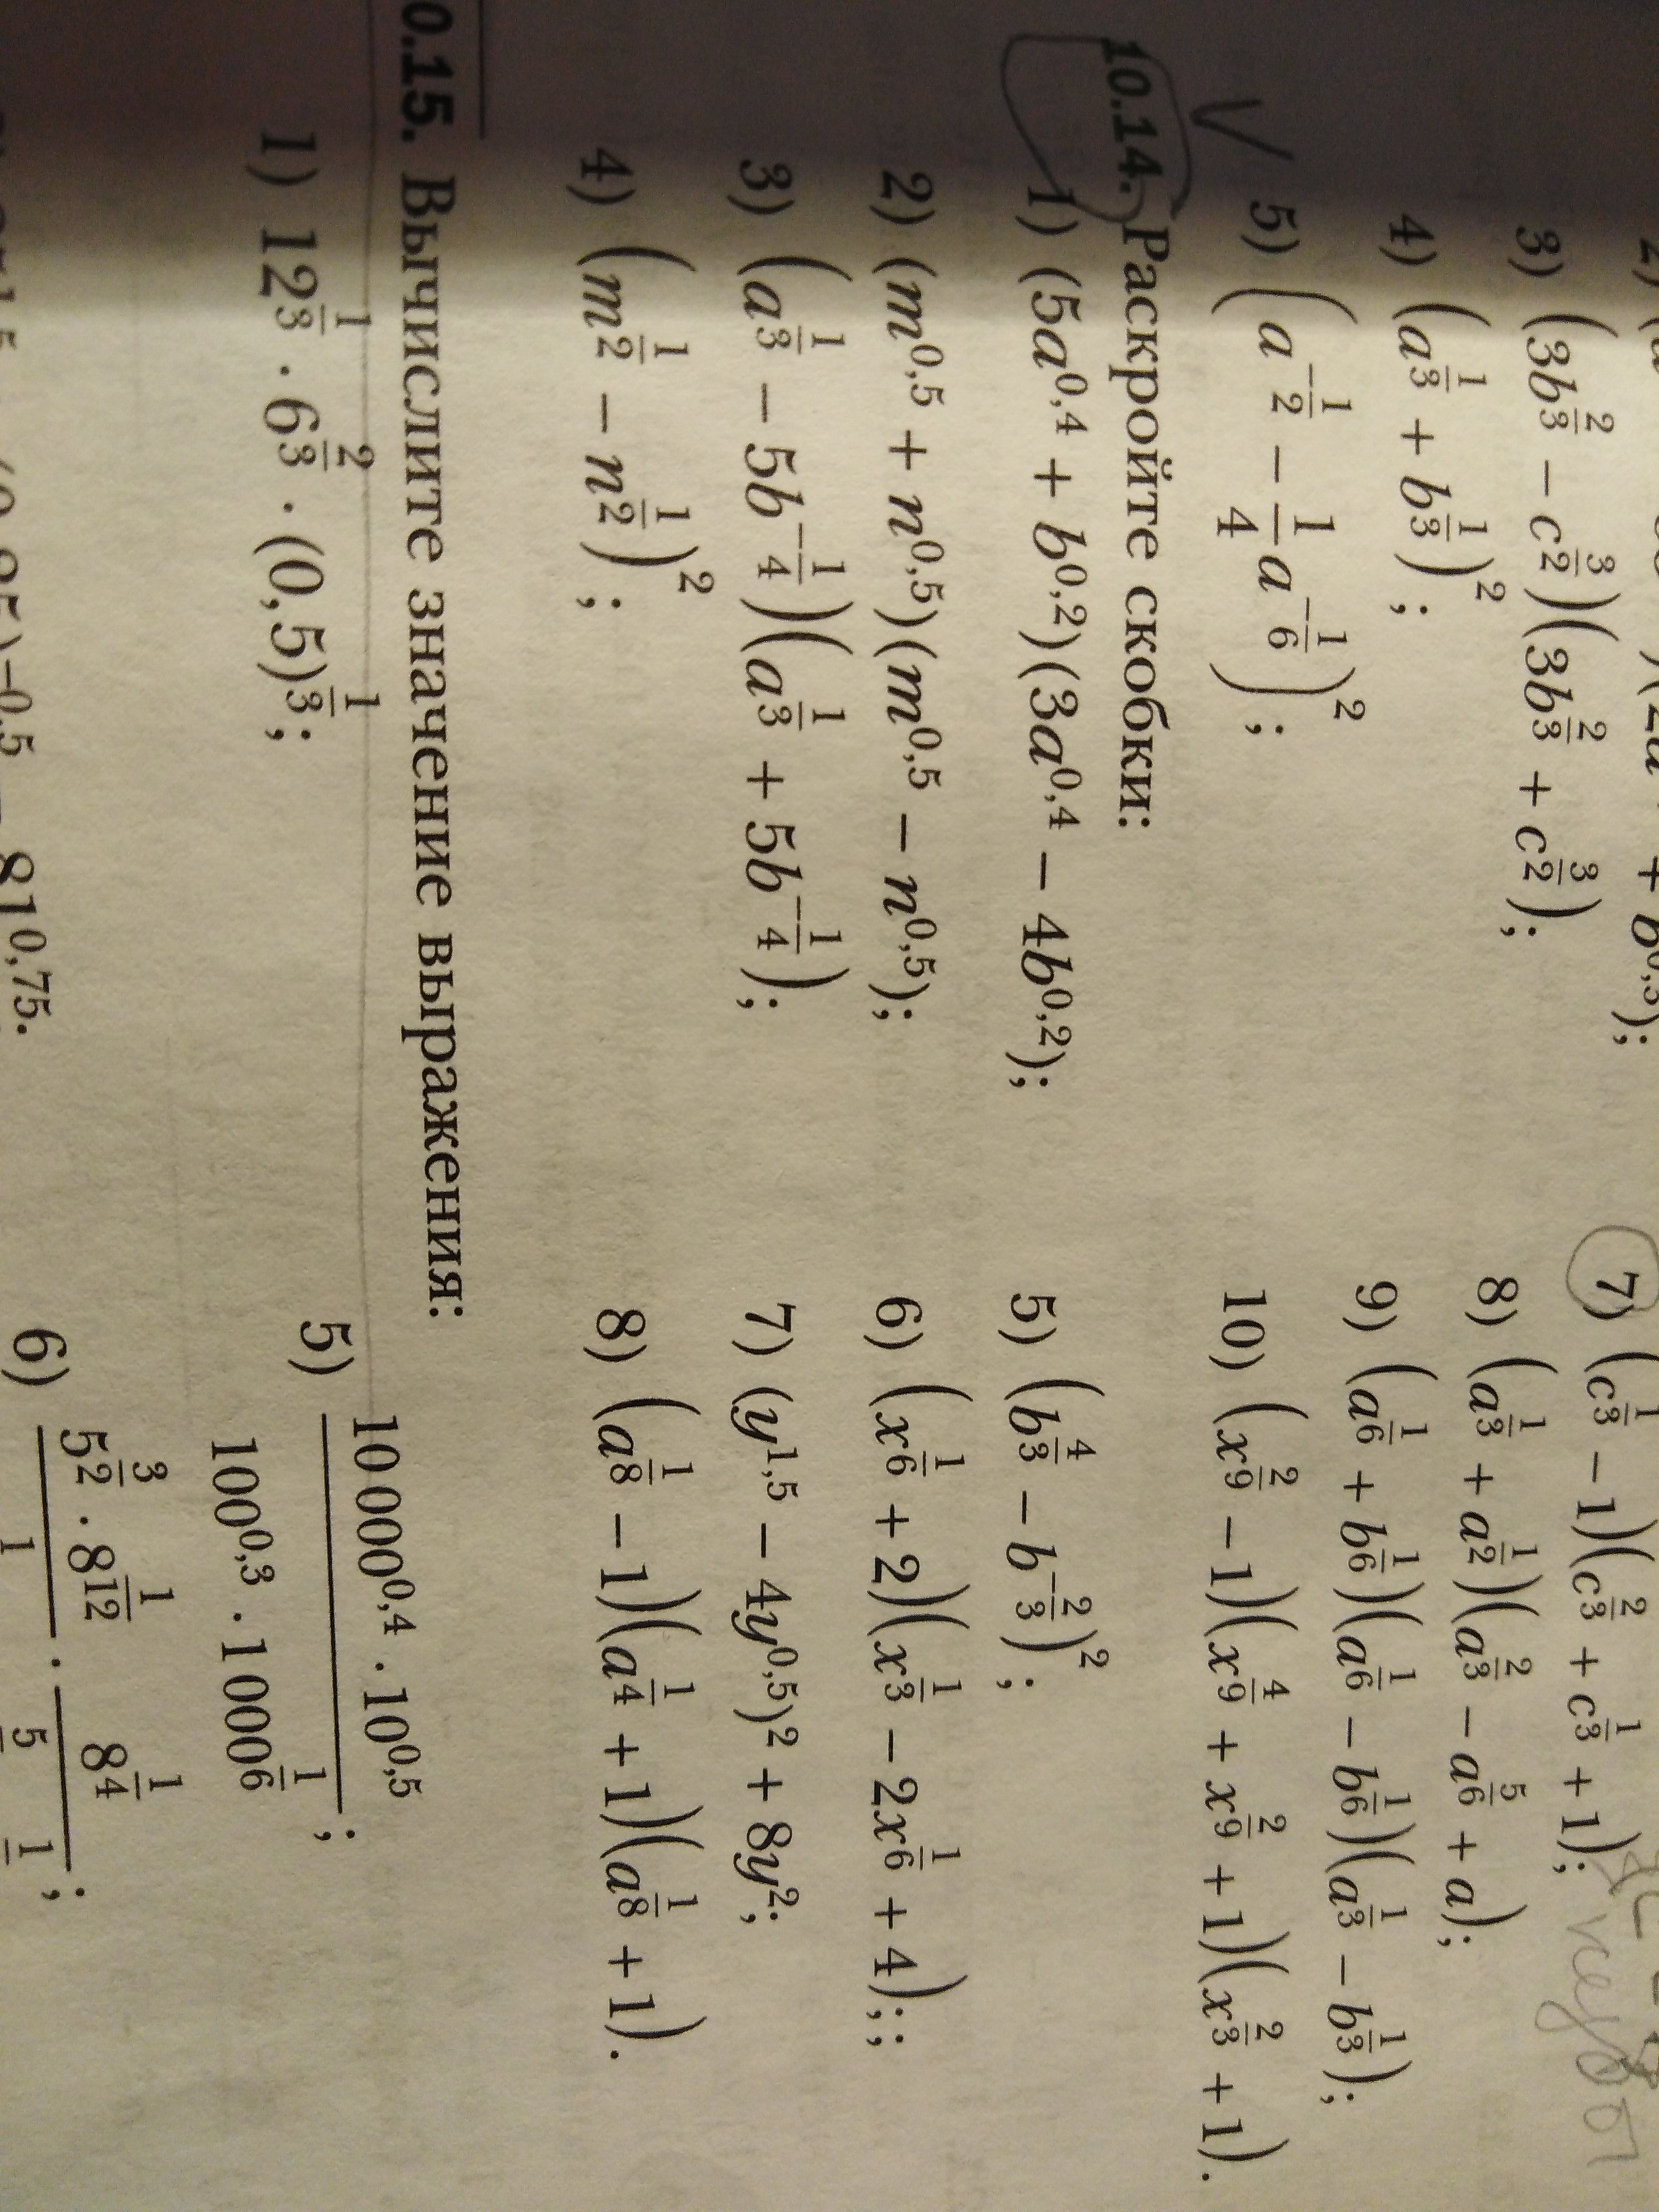 3) (3b^{2/3} − c^{3/2})(3b^{2/3} + c^{3/2});
4) (a^{1/3} + b^{1/3})^2;
5) (a^{−1/2} − 1/4 a^{−1/6})^2;
7) (c^{1/3} − 1)(c^{2/3} + c^{1/3} + 1);
8) (a^{1/3} + a^{1/2})(a^{2/3} − a^{5/6} + a);
9) (a^{1/6} + b^{1/6})(a^{1/6} − b^{1/6})(a^{1/3} − b^{1/3});
10) (x^{2/9} − 1)(x^{4/9} + x^{2/9} + 1)(x^{2/3} + 1).
10.14. Раскройте скобки:
1) (5a^{0,4} + b^{0,2})(3a^{0,4} − 4b^{0,2});
2) (m^{0,5} + n^{0,5})(m^{0,5} − n^{0,5});
3) (a^{1/3} − 5b^{−1/4})(a^{1/3} + 5b^{−1/4});
4) (m^{1/2} − n^{1/2})^2;
5) (b^{4/3} − b^{−2/3})^2;
6) (x^{1/6} + 2)(x^{1/3} − 2x^{1/6} + 4);;
7) (y^{1,5} − 4y^{0,5})^2 + 8y^2;
8) (a^{1/8} − 1)(a^{1/4} + 1)(a^{1/8} + 1).
0.15. Вычислите значение выражения:
1) 12^{1/3} · 6^{2/3} · (0,5)^{1/3};
81^{0,75}.
5) (10 000^{0,4} · 10^{0,5}) / (100^{0,3} · 1000^{1/6});
6) 5^{3/2} · 8^{1/12} · 8^{1/4} ;